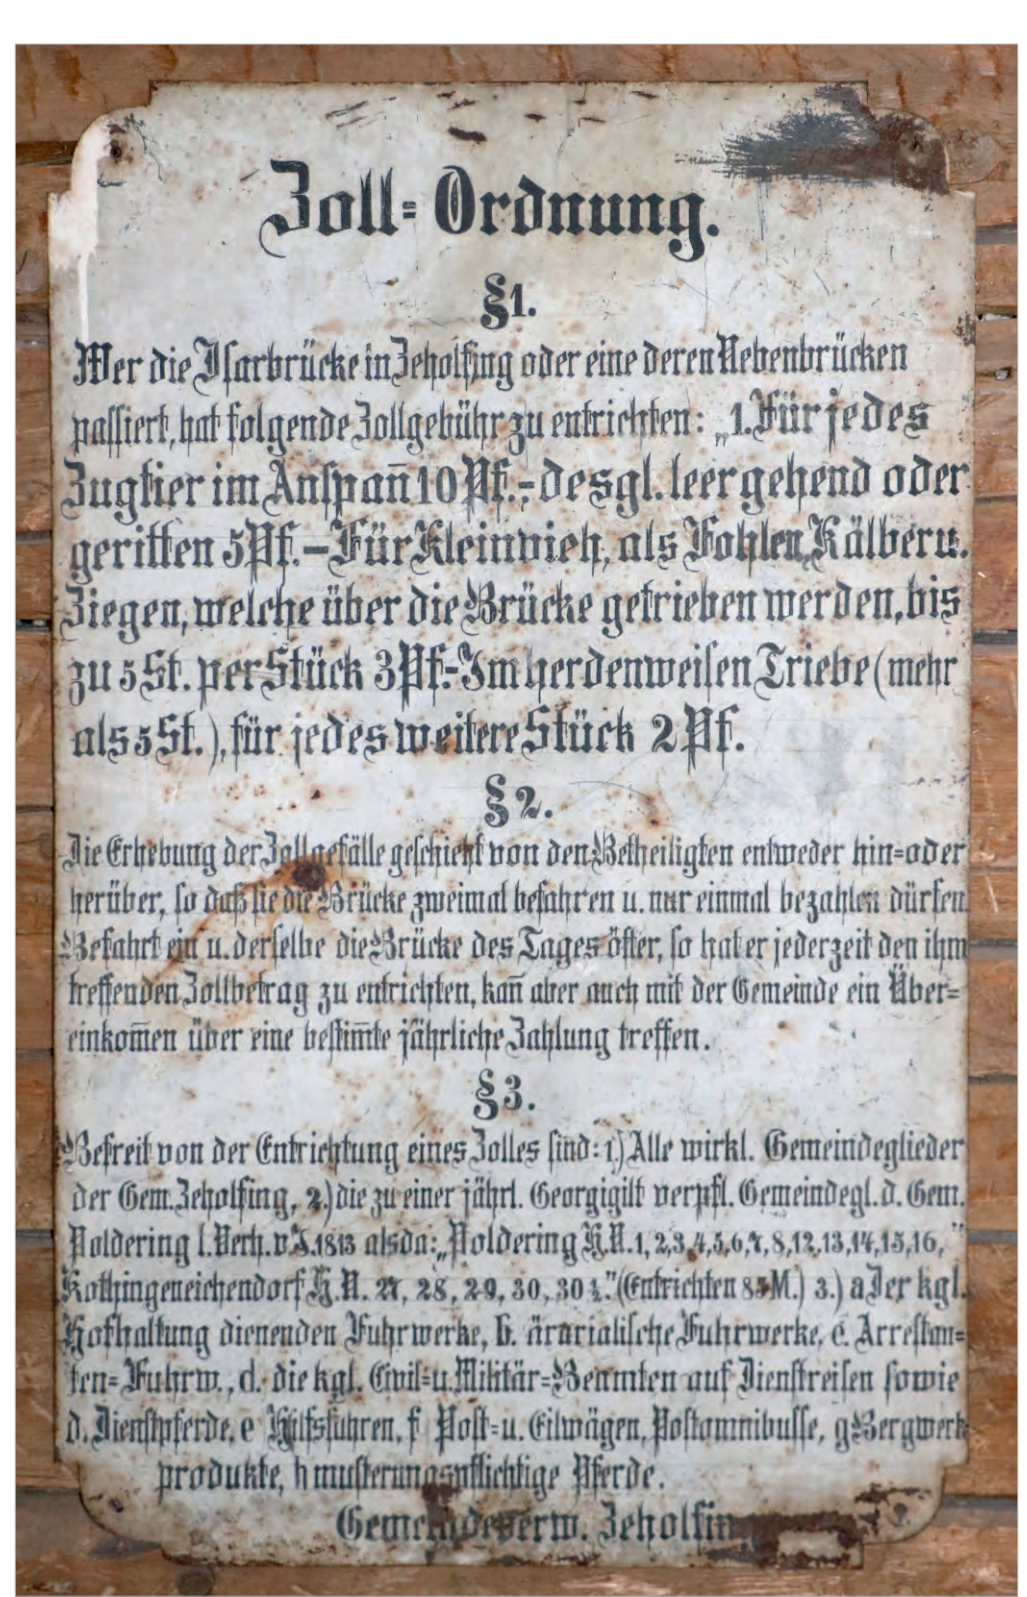 Zoll=Ordnung.
§1.
Wer die Isarbrücke in Zeholfing oder eine deren Nebenbrücken
passiert, hat folgende Zollgebühr zu entrichten: „1. Für jedes
Zugtier im Anspan̄ 10 Pf.- desgl. leer gehend oder
geritten 5 Pf. – Für Kleinvieh, als Fohlen, Kälber u.
Ziegen, welche über die Brücke getrieben werden, bis
zu 5 St. per Stück 3 Pf.- Im herdenweisen Triebe (mehr
als 5 St.), für jedes weitere Stück 2 Pf.
§2.
Die Erhebung der Zollgefälle geschieht von den Betheiligten entweder hin=oder
herüber, so daß sie die Brücke zweimal befahren u. nur einmal bezahlen dürfen.
Befahrt ein u. derselbe die Brücke des Tages öfter, so hat er jederzeit den ihm
treffenden Zollbetrag zu entrichten, kan̄ aber auch mit der Gemeinde ein Über=
einkom̄en über eine bestim̄te jährliche Zahlung treffen.
§3.
Befreit von der Entrichtung eines Zolles sind: 1.) Alle wirkl. Gemeindeglieder
der Gem. Zeholfing, 2.) die zu einer jährl. Georgigilt verpfl. Gemeindegl. d. Gem.
Poldering l. Verh. v. J. 1813 als da: „Poldering H.N. 1, 2, 3, 4, 5, 6, 7, 8, 12, 13, 14, 15, 16,"
Kothingeneichendorf H.N. 27, 28, 29, 30, 30½." (Entrichten 85 M.) 3.) a Der kgl.
Hofhaltung dienenden Fuhrwerke, b. ärarialische Fuhrwerke, c. Arrestan=
ten=Fuhrw., d. die kgl. Civil=u. Militär=Beamten auf Dienstreisen sowie
d. Dienstpferde, e Hilfsfuhren, f Post=u. Eilwägen, Postomnibusse, g Bergwerk=
produkte, h musterungspflichtige Pferde.
Gemeindeverw. Zeholfing